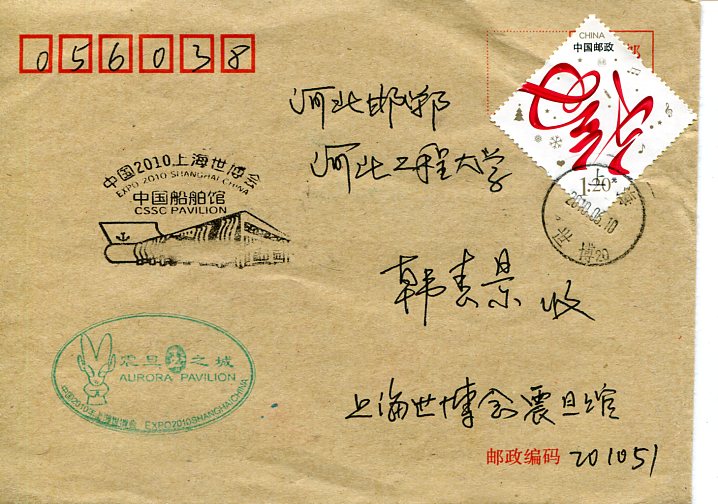 056038
CHINA
中国邮政
河北邯郸
河北工程大学
中国2010上海世博会
EXPO 2010 SHANGHAI CHINA
中国船舶馆
CSSC PAVILION
1.20
上海
2010.06.10
世博
韩春景 收
震旦 之城
AURORA PAVILION
中国2010年上海世博会 EXPO 2010 SHANGHAI CHINA
上海世博会震旦馆
邮政编码 201051